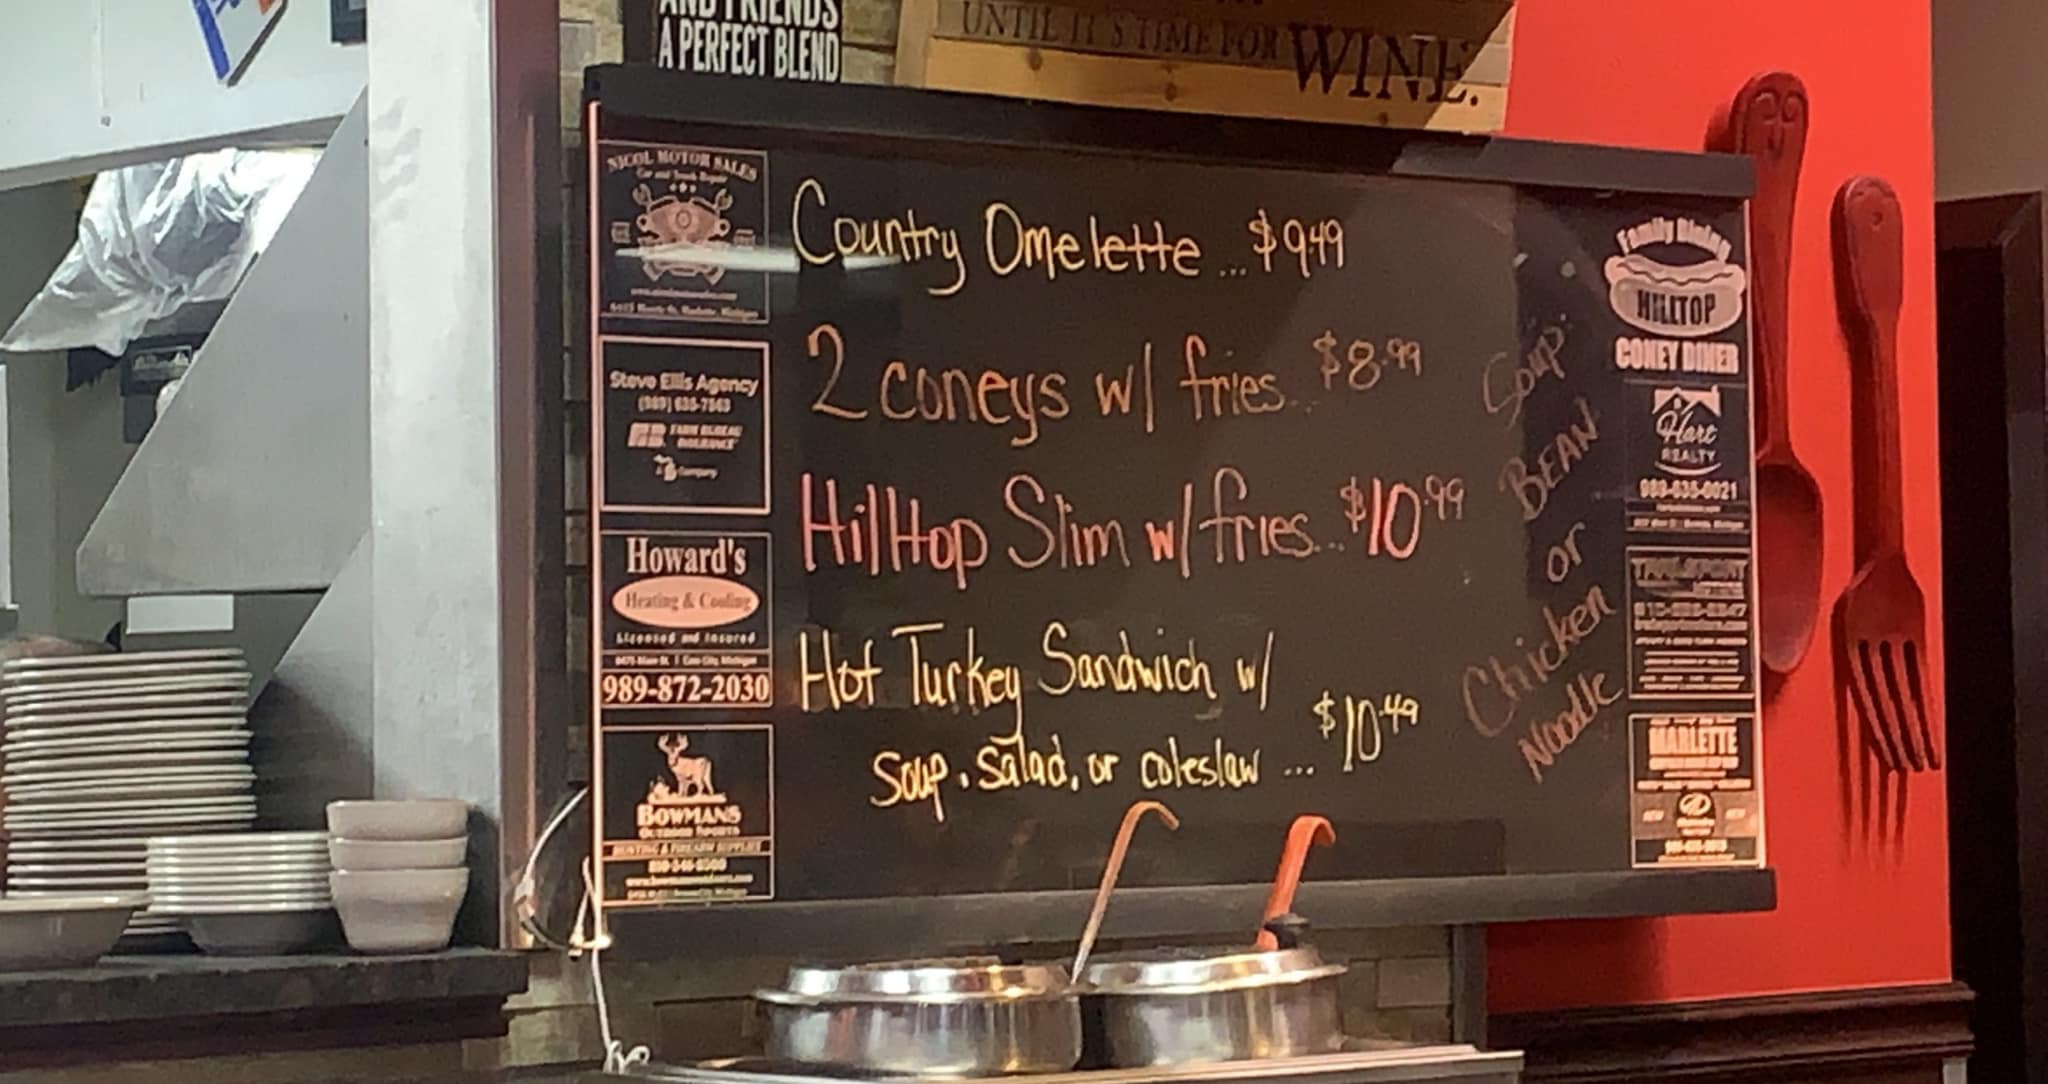 AND FRIENDS
A PERFECT BLEND
UNTIL IT'S TIME FOR WINE.
NICOL MOTOR SALES
Car and Truck Repair
Steve Ellis Agency
(989) 635-7563
FARM BUREAU
INSURANCE
Company
Howard's
Heating & Cooling
Licensed and Insured
989-872-2030
BOWMANS
OUTDOOR SPORTS
HUNTING & FIREARM SUPPLIES
Country Omelette ... $9.49
2 coneys w/ fries... $8.99
Hilltop Slim w/ fries... $10.99
Hot Turkey Sandwich w/
soup, salad, or coleslaw ... $10.49
Soup:
BEAN
or
Chicken
Noodle
Family Dining
HILLTOP
CONEY DINER
Hart
REALTY
989-635-0021
MARLETTE